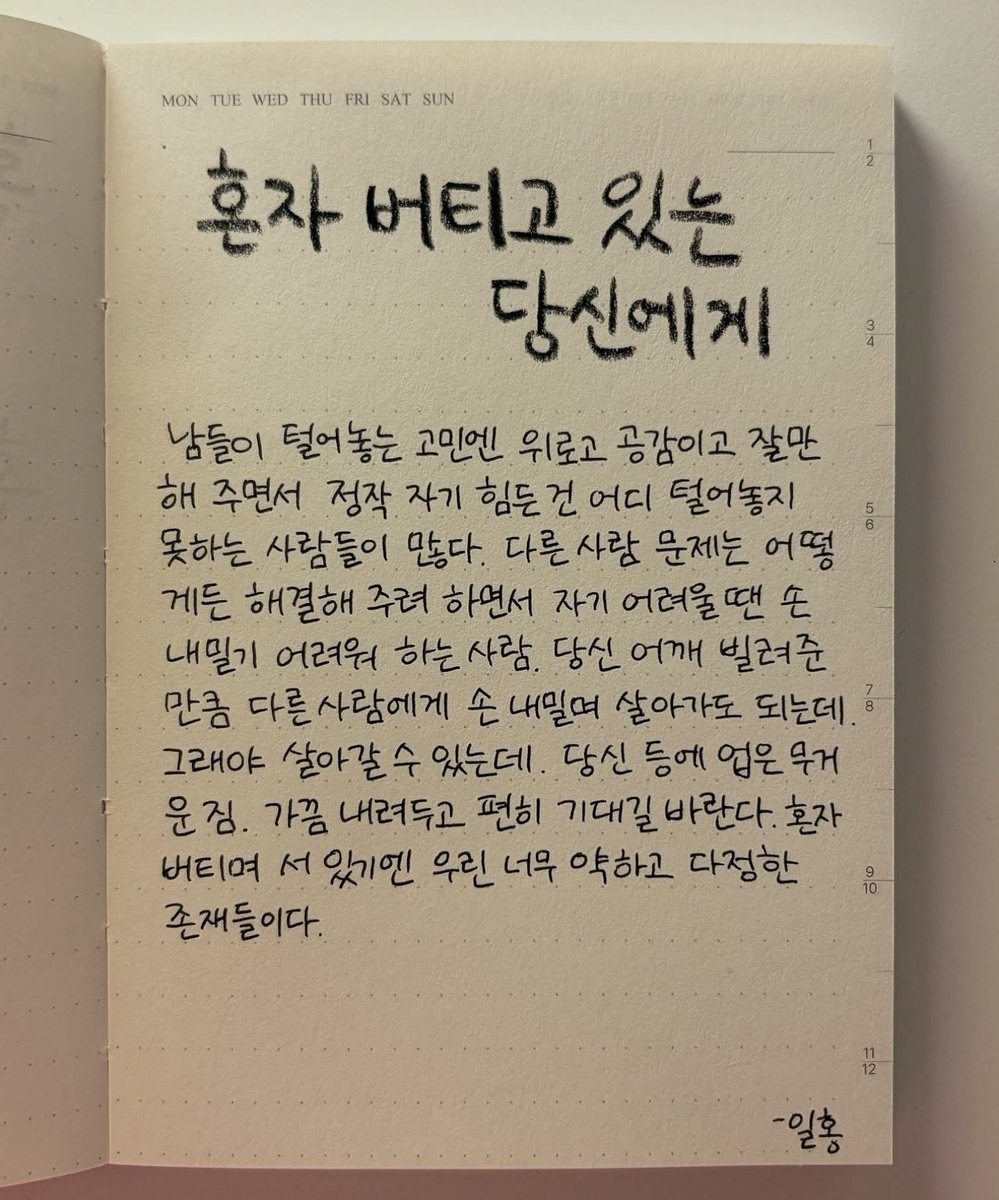 MON TUE WED THU FRI SAT SUN
1
2
혼자 버티고 있는
당신에게
3
4
남들이 털어놓는 고민엔 위로고 공감이고 잘만
해 주면서 정작 자기 힘든 건 어디 털어놓지
5
6
못하는 사람들이 많다. 다른 사람 문제는 어떻
게든 해결해 주려 하면서 자기 어려울 땐 손
내밀기 어려워 하는 사람. 당신 어깨 빌려준
7
8
만큼 다른 사람에게 손 내밀며 살아가도 되는데.
그래야 살아갈 수 있는데. 당신 등에 업은 무거
운 짐. 가끔 내려두고 편히 기대길 바란다. 혼자
버티며 서 있기엔 우린 너무 약하고 다정한
9
10
존재들이다.
11
12
-일홍